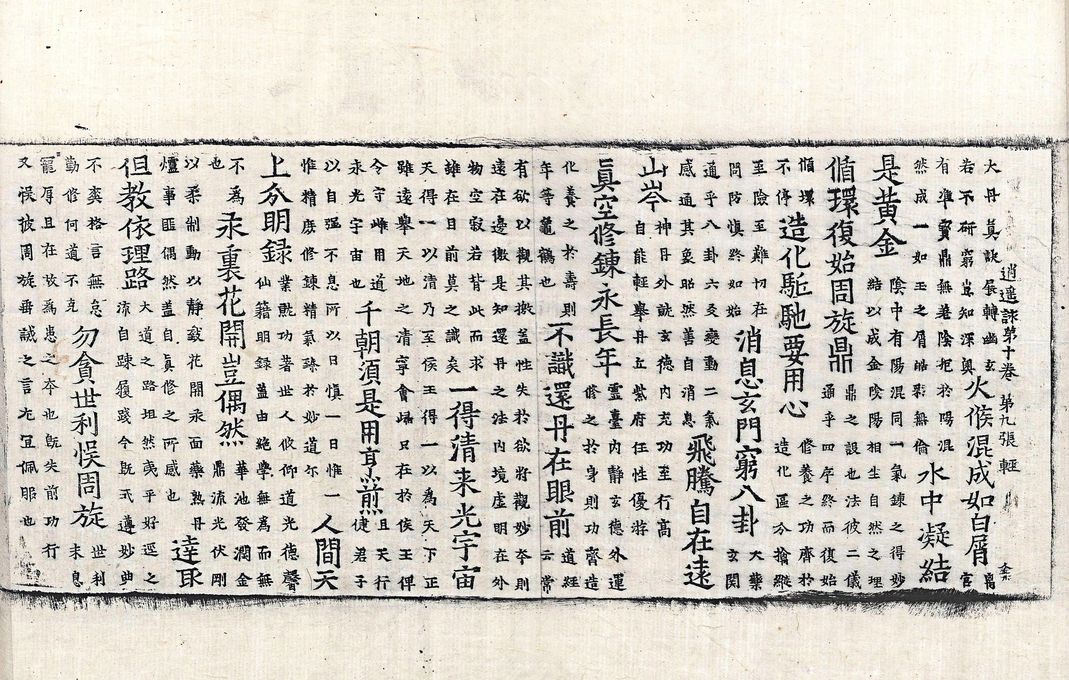 逍遥詠第十卷　第九張　輕
大丹真訣展轉幽玄
若不研窮豈知深奧
火候混成如白屑
有準寶鼎無差陰抱於陽混
然成一如玉之屑皓彩無倫
水中凝結
是黃金
陰中有陽混同一氣鍊之得妙
結以成金陰陽相生自然之理
循環復始周旋鼎
鼎之設也法彼二儀
通乎四序終而復始
循環
不停
造化駈馳要用心
修養之功齊於
造化區分搶縱
至險至難切在
問防慎終如始
消息玄門窮八卦
大藥
玄関
通乎八卦六爻變動二氣
感通其象昭然善自消息
飛騰自在遠
山岑
神日外誠玄德内充功至行高
自能輕舉丹丘紫府任性優游
真空修鍊永長年
靈臺内靜玄德外運
修之於身則功齊造
化養之於壽則
年等龜鶴也
不識還丹在眼前
道經
云常
有欲以觀其徼蓋性失於欲將觀妙本則
遠在邊徼是知還丹之法内境虛明在外
物空寂若背此而求
雖在目前莫之識矣
一得清来光宇宙
天得一以清乃至侯王得一以為天下正
雖遠舉天地之清寧會歸只在於侯王俾
令守雌用道
永光宇宙也
千朝須是用烹煎
且天行
健君子
以自强不息所以日慎一日惟一
惟精庶修鍊精氣臻於妙道尒
人間天
上分明録
業就功著世人攸仰道光德馨
仙籍明録蓋由絕學無為而無
不為
也
汞裏花開豈偶然
華池發潤金
鼎流光伏剛
以柔制動以靜致花開汞面藥熟丹
爐事匪偶然蓋自真修之所感也
達取
但教依理路
大道之路坦然夷乎好逕之
流自踈履踐今既式遵妙典
不爽格言無怠
勤修何道不克
勿貪世利悮周旋
世利
未息
寵辱且在故為患之本也既失前功行
又悮彼周旋垂誡之言尤宜佩服也